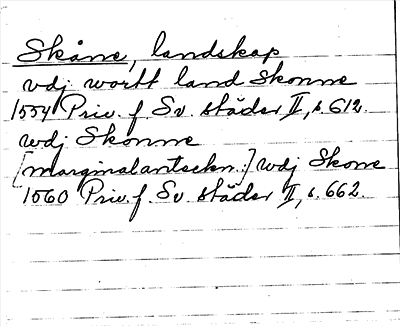 Skåne, landskap
vdj wortt land Skonne
1554 Priv. f. Sv. städer II, s. 612.
wdj Skonne
[marginalanteckn.:] wdj Skone
1560 Priv. f. Sv. städer II, s. 662.